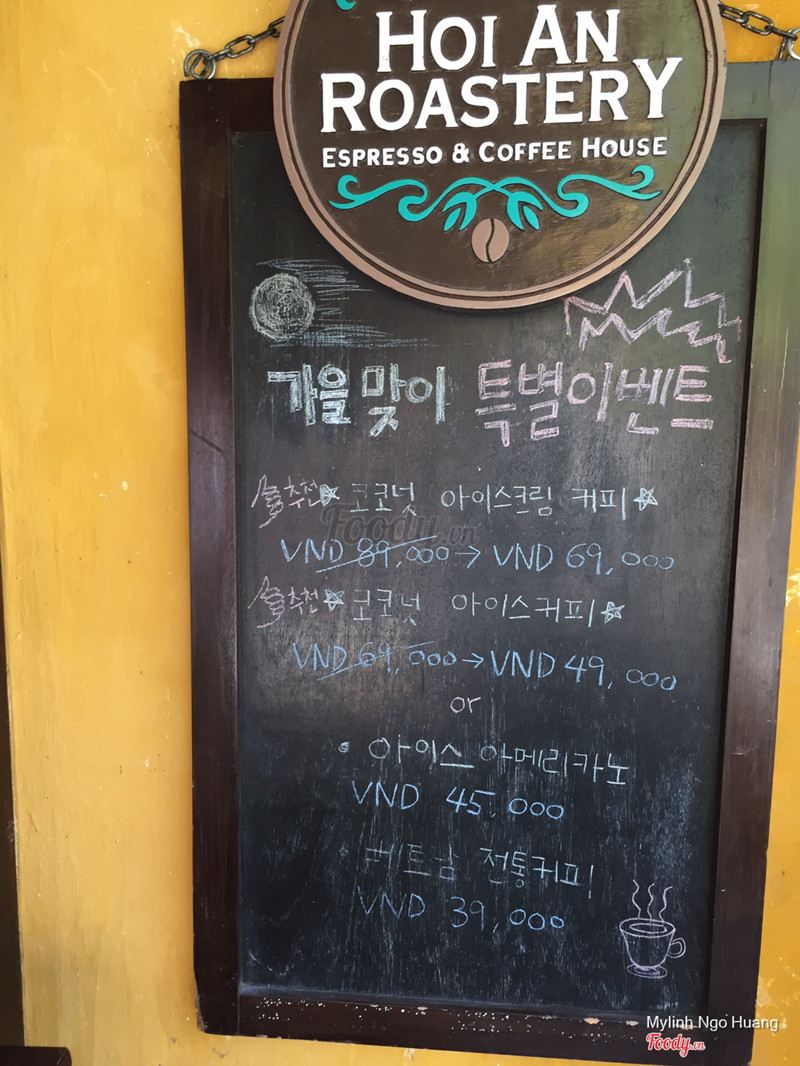 HOI AN
ROASTERY
ESPRESSO & COFFEE HOUSE
가을 맞이 특별이벤트
추천 코코넛 아이스크림 커피
VND 89,000 → VND 69,000
추천 코코넛 아이스커피
VND 69,000 → VND 49,000
or
• 아이스 아메리카노
VND 45,000
• 베트남 전통커피!
VND 39,000
Foody.vn
Mylinh Ngo Huang
Foody.vn